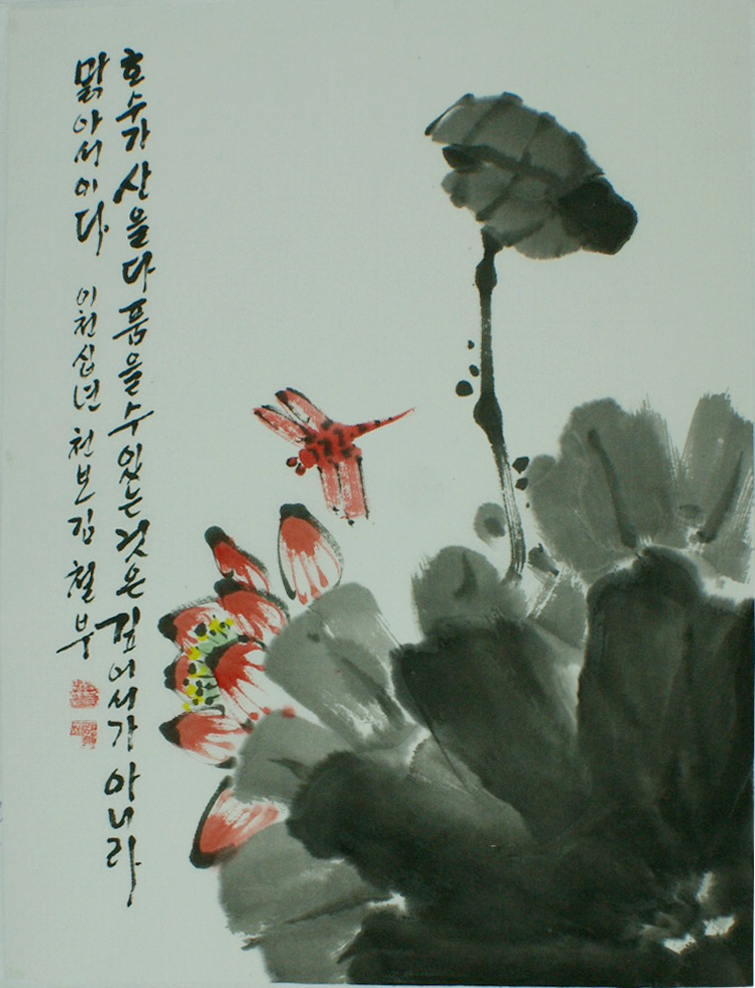 호수가 산을 다 품을 수 있는 것은 깊어서가 아니라
맑아서이다 이천십년 천보 김철부